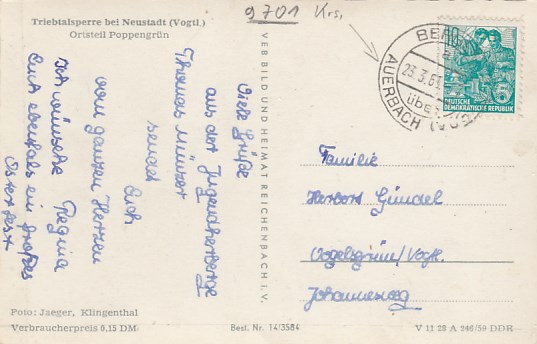 Triebtalsperre bei Neustadt (Vogtl.)
Ortsteil Poppengrün
9701 Krs.
Viele Grüße
aus der Jugendherberge
Thomas Münzer
sendet
Euch
von ganzen Herzen
Regina
Ich wünsche
Euch ebenfalls ein großes
Osterfest
VEB BILD UND HEIMAT REICHENBACH I. V.
AUERBACH (VOGTL
über
23.3.61
DEUTSCHE
DEMOKRATISCHE REPUBLIK
5
Familie
Herbert Gündel
Vogelsgrün/Vogtl.
Johannesweg
Foto: Jaeger, Klingenthal
Verbraucherpreis 0,15 DM
Best. Nr. 14/3584
V 11 28 A 246/59 DDR